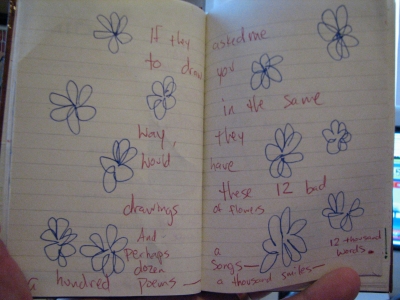 If they asked me
to draw you
in the same
way, they
would have
these 12 bad
drawings of flowers
And
perhaps a
dozen songs—
a hundred poems— a thousand smiles—
12-thousand
words.